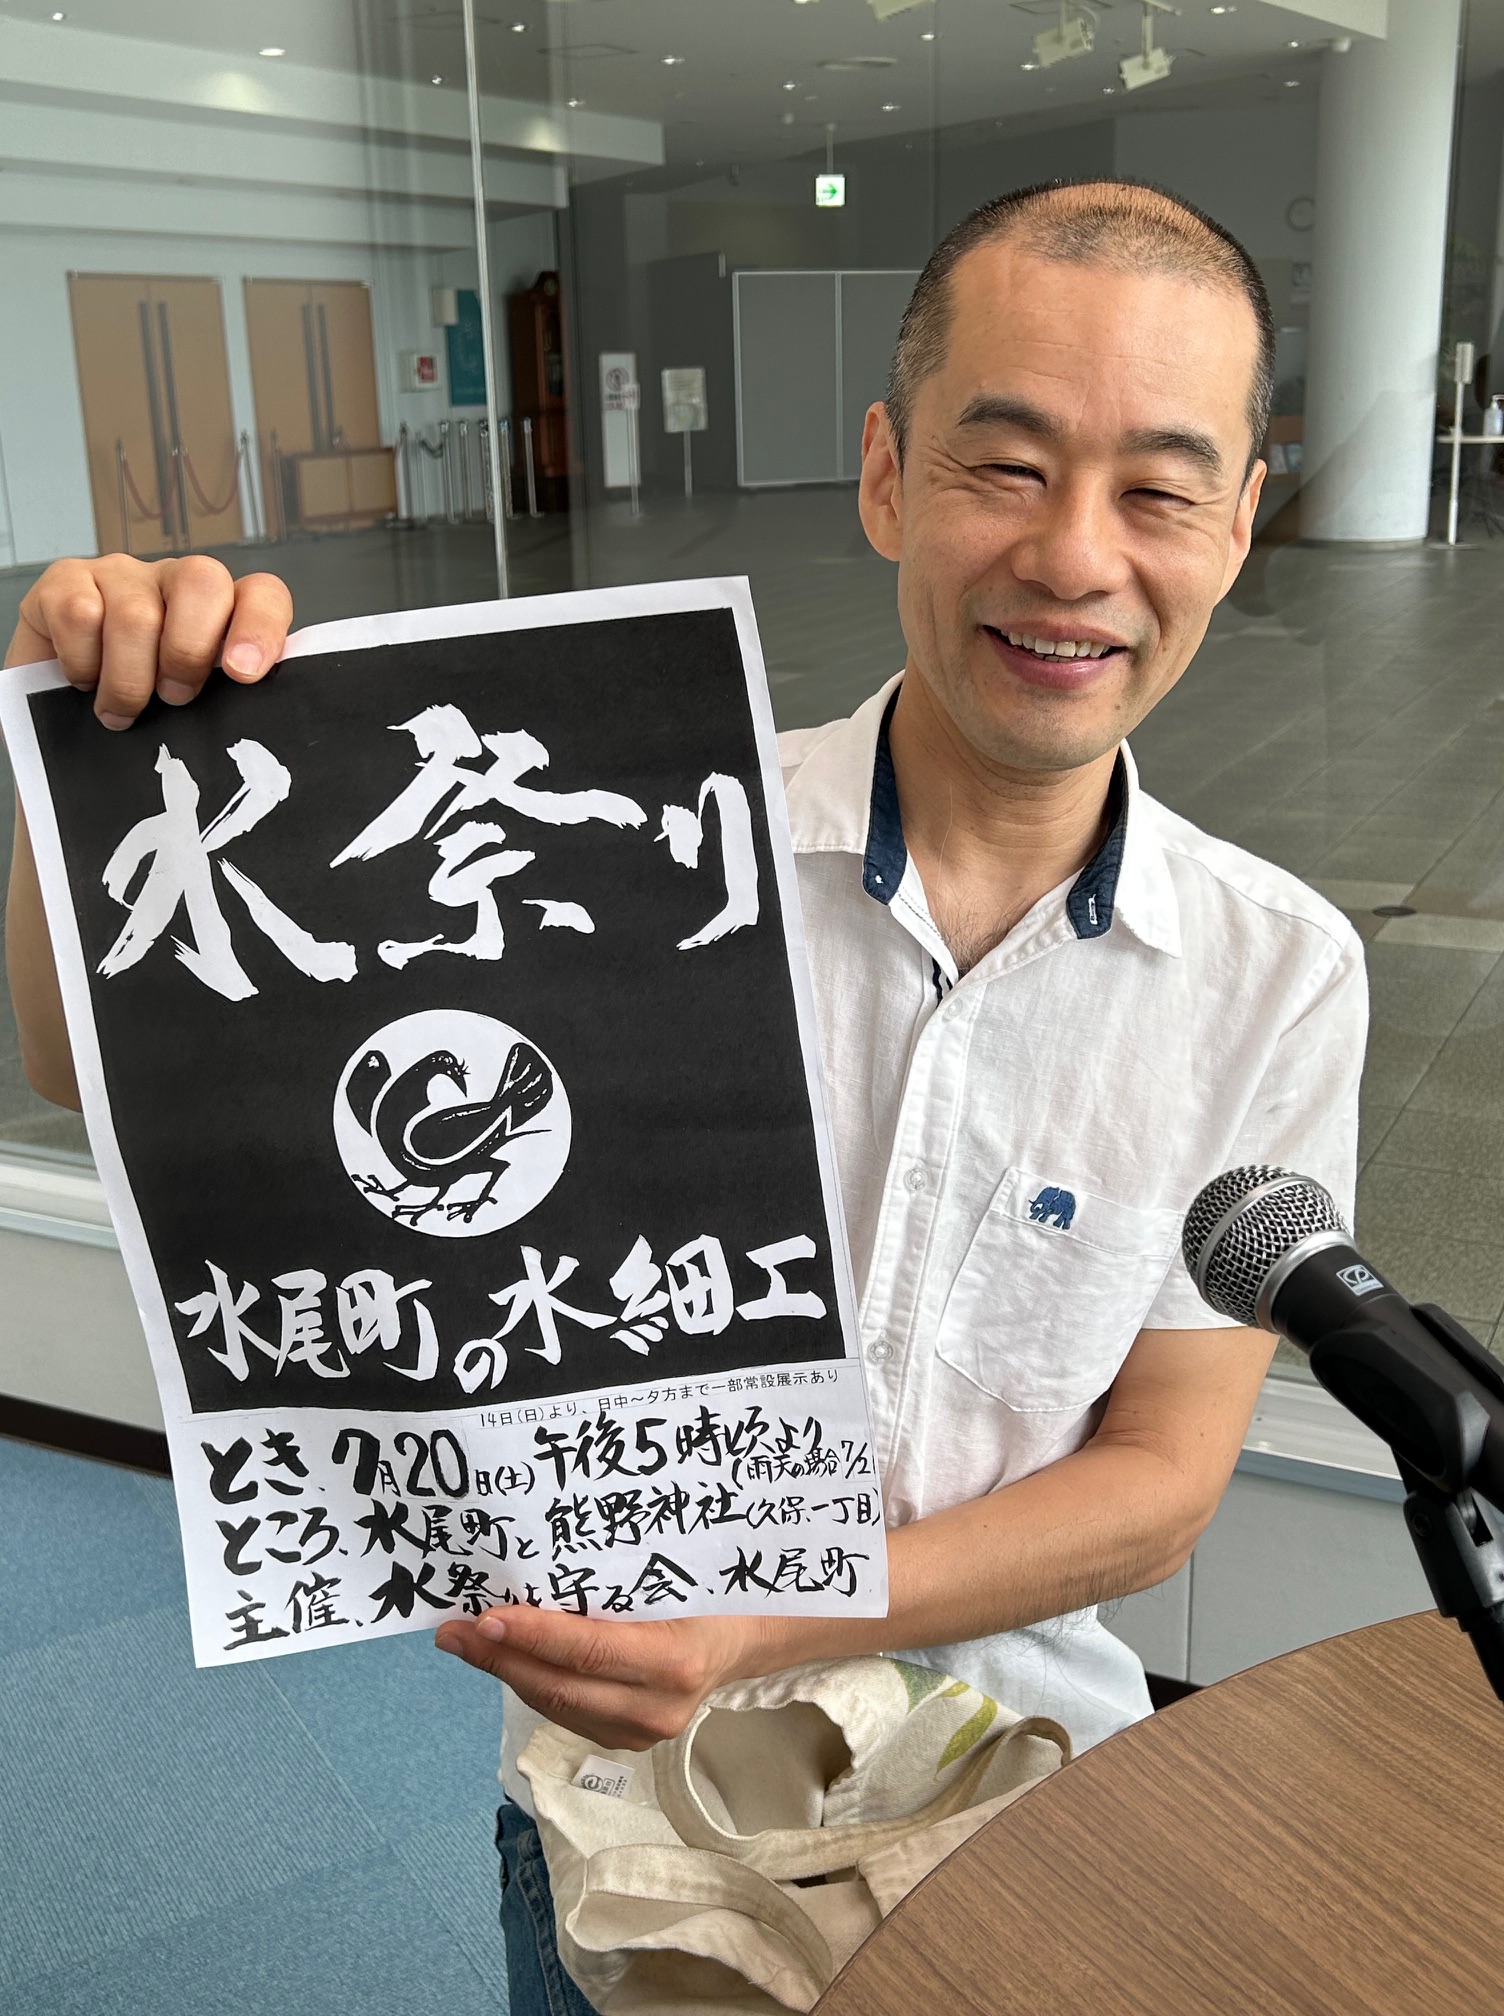 水祭り
水尾町の水細工
14日(日)より、日中～夕方まで一部常設展示あり
とき、7月20日(土)午後5時頃より
(雨天の場合7/2
ところ、水尾町と熊野神社(久保、一丁目)
主催、水祭りを守る会、水尾町